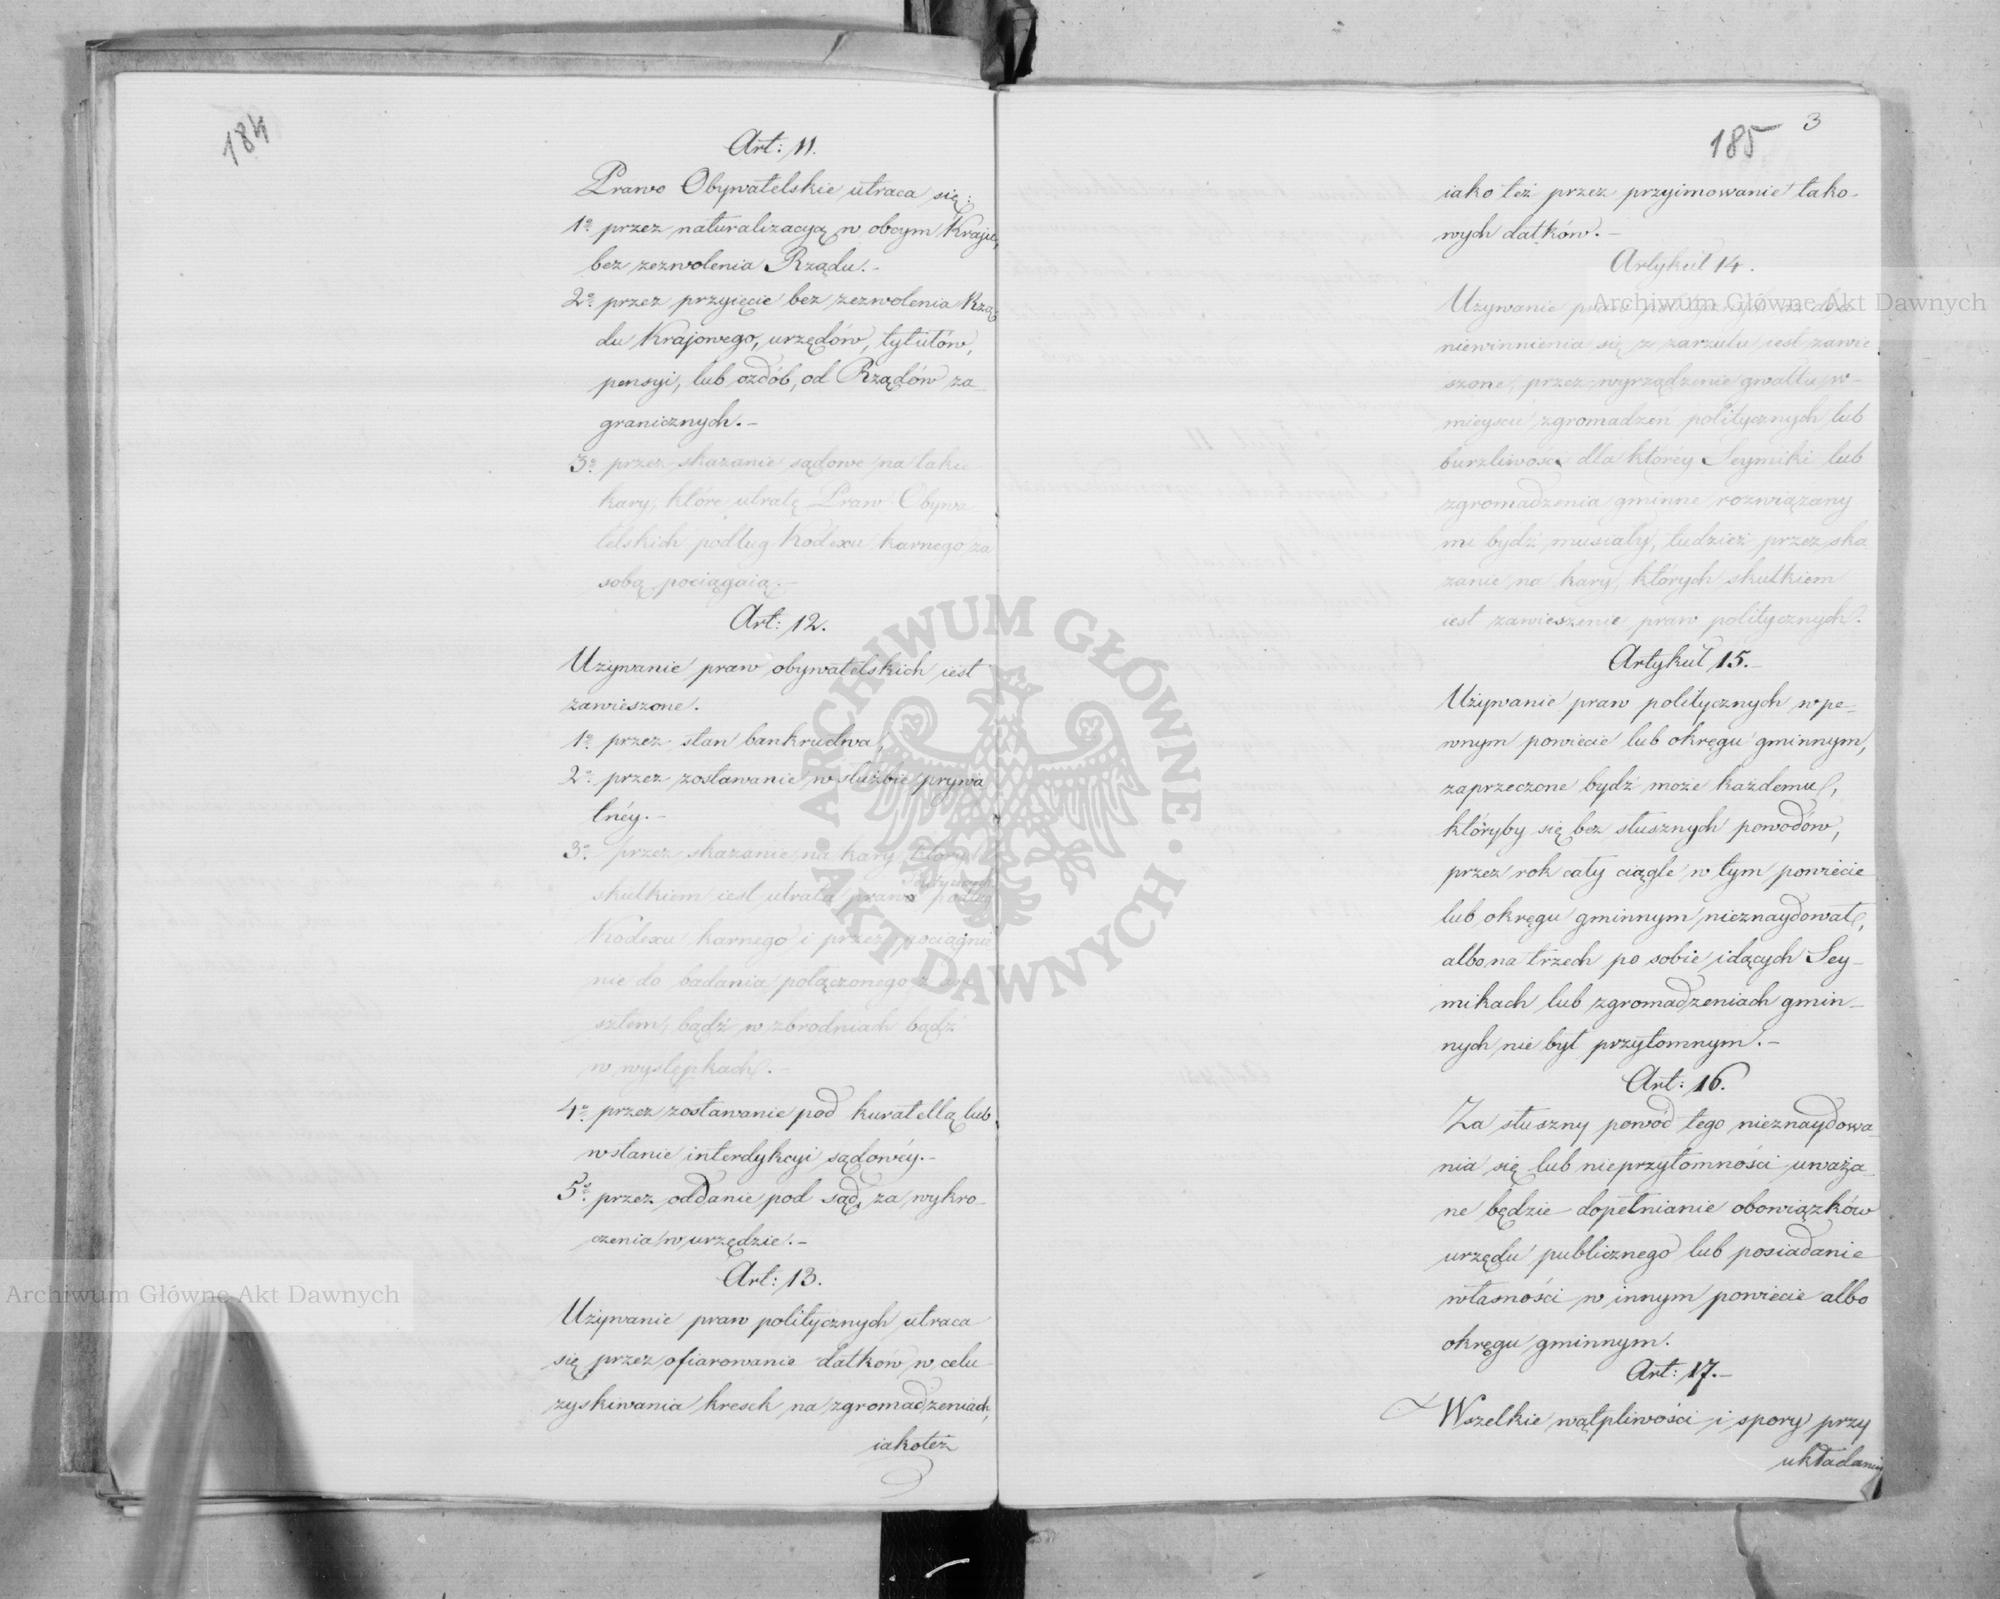 184
Art: 11.
Prawo Obywatelskie utraca się:
1º przez naturalizacyą w obcym Kraju,
bez zezwolenia Rządu.-
2º przez przyięcie bez zezwolenia Rzą
du Krajowego, urzędów, tytułów,
pensyi, lub ozdób, od Rządów za
granicznych.-
3º przez skazanie sądowe na takie
kary, które utratę Praw Obywa
telskich podług Kodexu karnego za
sobą pociągaią.-
Art: 12.
Używanie praw obywatelskich iest
zawieszone.
1º przez stan bankructwa,
2º przez zostawanie w służbie prywa
tnéy.-
3º przez skazanie na kary, których
skutkiem iest utrata prawa podług
Kodexu karnego i przez pociągnie
nie do badania połączonego z are
sztem, bądź w zbrodniach bądź
w występkach.-
4º przez zostawanie pod kuratellą lub
w stanie interdykcyi sądowéy.-
5º przez oddanie pod sąd, za wykro-
czenia w urzędzie.-
Art: 13.
Używanie praw politycznych utraca
się przez ofiarowanie datków w celu
zyskiwania kresek na zgromadzeniach,
iakoteż
3
185
iako też przez przyimowanie tako-
wych datków.-
Artykuł 14.
Używanie praw politycznych aż do u
niewinnienia się z zarzutu iest zawie
szone, przez wyrządzenie gwałtu w-
mieyscu zgromadzeń politycznych lub
burzliwość dla któréy Seymiki lub
zgromadzenia gminne rozwiązany
mi bydź musiały, tudzież przez ska
zanie na kary, których skutkiem
iest zawieszenie praw politycznych.
Artykuł 15.-
Używanie praw politycznych w pe-
wnym powiecie lub okręgu gminnym,
zaprzeczone bydź może każdemu,
któryby się bez słusznych powodów,
przez rok cały ciągle w tym powiecie
lub okręgu gminnym nieznaydował,
albo na trzech po sobie idących Sey-
mikach lub zgromadzeniach gmin-
nych nie był przytomnym.-
Art: 16.
Za słuszny powód tego nieznaydowa-
nia się lub nieprzytomności uważa
ne będzie dopełnianie obowiązków
urzędu publicznego lub posiadanie
własności w innym powiecie albo
okręgu gminnym.
Art: 17.-
Wszelkie wątpliwości i spory przy
układaniu
Archiwum Główne Akt Dawnych
ARCHIWUM GŁÓWNE
AKT DAWNYCH
Archiwum Główne Akt Dawnych